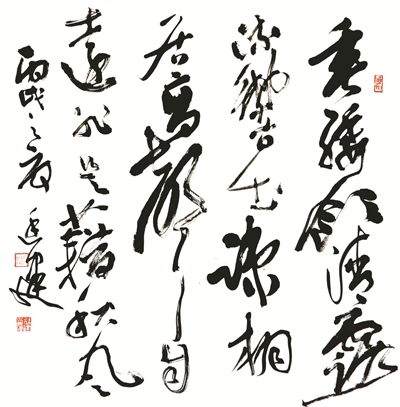 垂緌飲清露
流響出疎桐
居高聲自
遠非是藉秋风
丙戌之夏